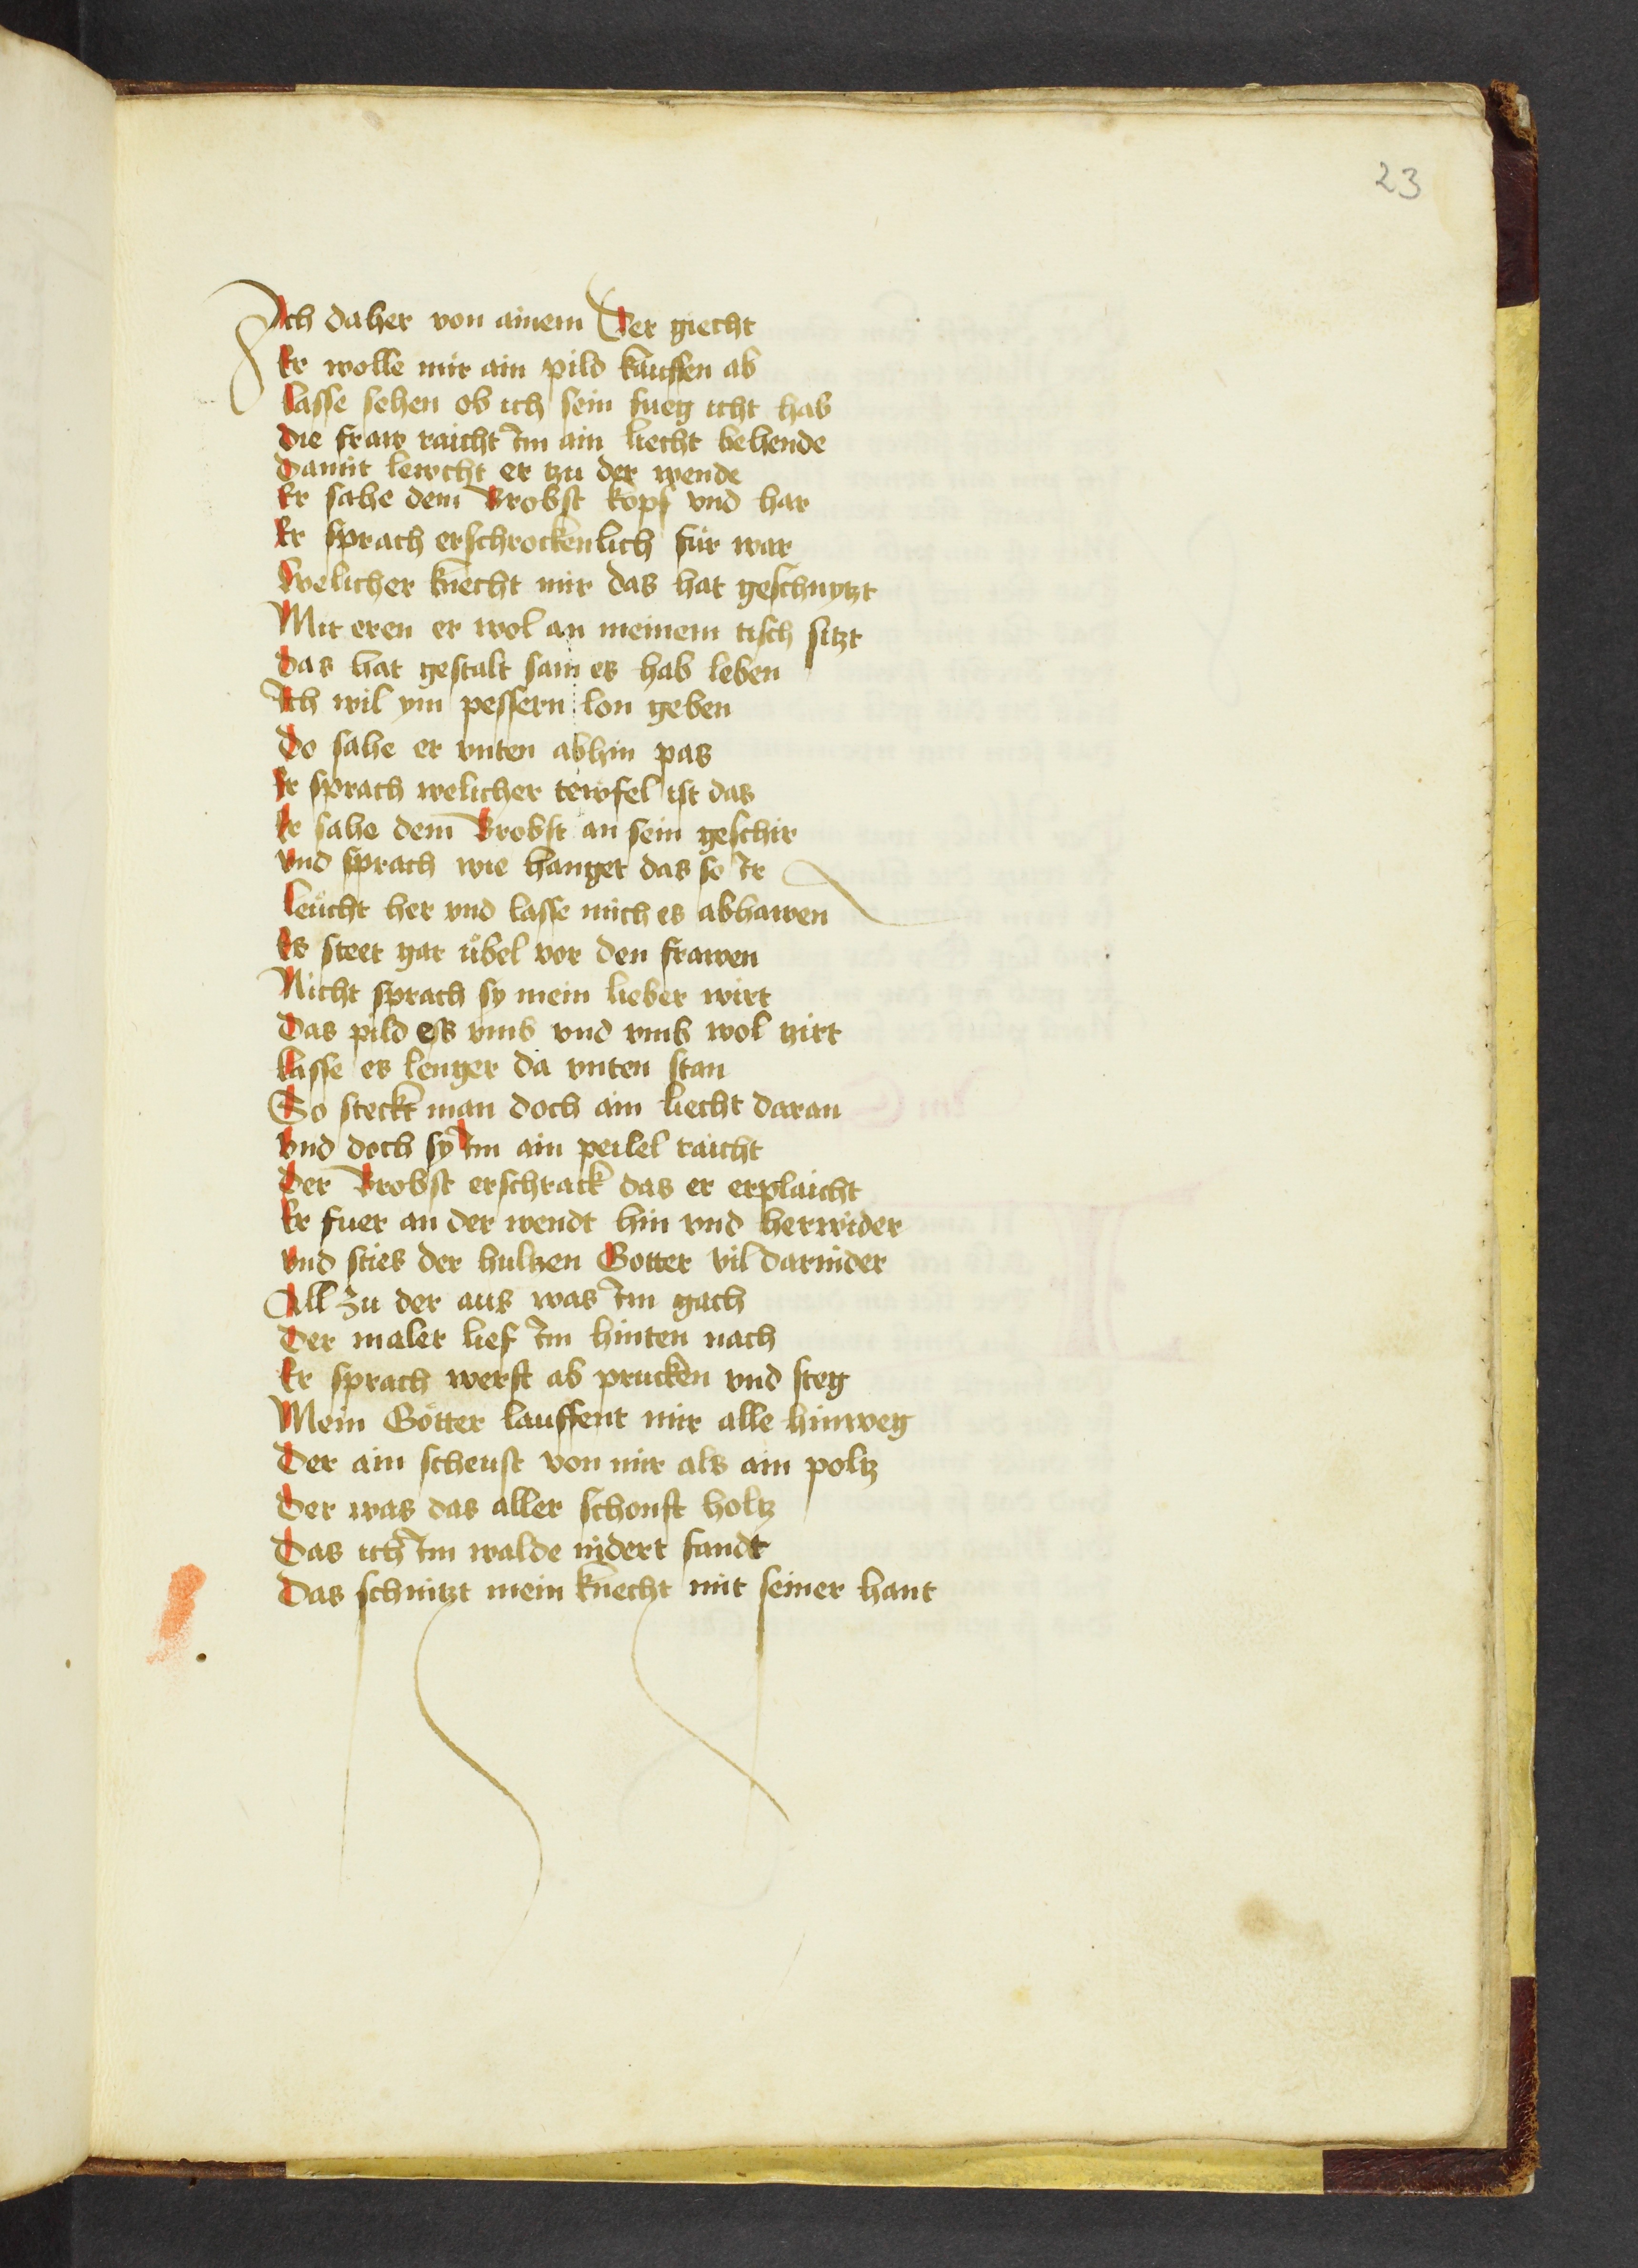 23
Ich daher von ainem Der giecht
Er wolle mir ain pild kauffen ab
Lasse sehen ob ich sein fueg icht hab
die fraw raicht Im ain liecht behende
damit lewcht er tzu der wende
Er sahe dem Brobst kopf vnd har
Er sprach erschrockenlich für war
Welicher knecht mir das hat geschnytzt
Mit eren er wol an meinem tisch sitzt
das hat gestalt sam es hab leben
Ich wil ym pessern lon geben
Do sahe er vnten abhin pas
Er sprach welicher tewfel ist das
Er sahe dem Brobst an sein geschir
vnd sprach wie hanget das so Ir
Leücht her vnd lasse mich es abhawen
Es steet gar übel vor den frawen
Nicht sprach sy mein lieber wirt
Das pild es vmb vnd vmb wol zirt
Lasse es lenger da vnten stan
So steckt man doch ain liecht daran
vnd doch sy Im ain peilel raicht
Der Brobst erschrack das er erplaicht
Er fuer an der wendt hin vnd herwider
vnd sties der hultzen Gotter vil darnider
All zu der aus was Im gach
Der maler lief Im hinten nach
Er sprach werft ab prucken vnd steg
Mein Götter lauffent mir alle hinweg
Der ain scheust von mir als ain poltz
Der was das aller schonst holtz
Das ich Im walde nidert fandt
Das schnitzt mein knecht mit seiner hant